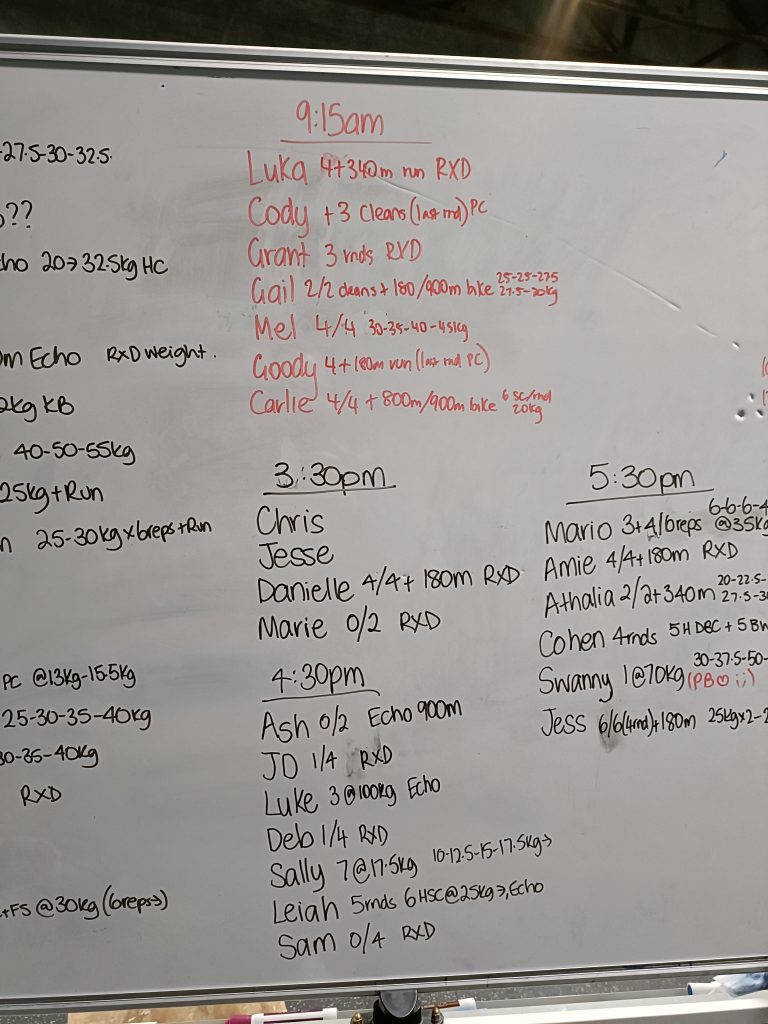 -27.5-30-32.5
??
20→32.5kg HC
Echo RXD weight.
2kg KB
40-50-55kg
25kg+Run
25-30kg x 6reps+Run
PC @13kg-15.5kg
25-30-35-40kg
30-35-40kg
RXD
+FS @30kg (6reps→)
9:15am
Luka 4+340m run RXD
Cody +3 Cleans (last rnd) PC
Grant 3 rnds RXD
Gail 2/2 cleans + 180/900m bike 25-25-27.5
27.5-30kg
Mel 4/4 30-35-40-45kg
Goody 4+180m run (last rnd PC)
Carlie 4/4 + 800m/900m bike 6 SC/rnd
20kg
3:30pm
Chris
Jesse
Danielle 4/4+ 180m RXD
Marie 0/2 RXD
4:30pm
Ash 0/2 Echo 900m
JO 1/4 RXD
Luke 3@100kg Echo
Deb 1/4 RXD
Sally 7@17.5kg 10-12.5-15-17.5kg→
Leiah 5rnds 6HSC@25kg→, Echo
Sam 0/4 RXD
5:30pm
6-6-6-4
Mario 3+4/6reps @35kg
Amie 4/4+180m RXD
Athalia 2/2+340m 20-22.5-
27.5-30
Cohen 4rnds 5HDBC + 5
Swanny 1@70kg (PB♡ ;;) 30-37.5-50-
Jess 6/6(4rnd)+180m 25kgx2-2